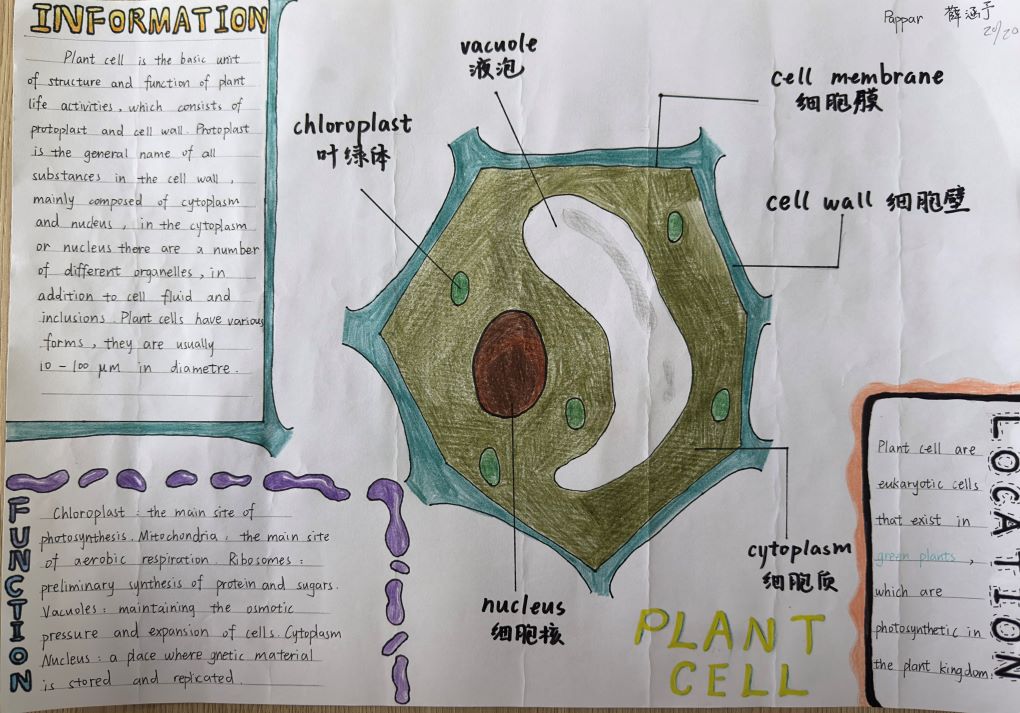 INFORMATION
Plant cell is the basic unit
of structure and function of plant
life activities, which consists of
protoplast and cell wall. Protoplast
is the general name of all
substances in the cell wall,
mainly composed of cytoplasm
and nucleus, in the cytoplasm
or nucleus there are a number
of different organelles, in
addition to cell fluid and
inclusions. Plant cells have various
forms, they are usually
10-100 μm in diametre.
Pappar 薛涵予
20/20
vacuole
液泡
cell membrane
细胞膜
chloroplast
叶绿体
cell wall 细胞壁
cytoplasm
细胞质
nucleus
细胞核
PLANT
CELL
FUNCTION
Chloroplast: the main site of
photosynthesis. Mitochondria: the main site
of aerobic respiration. Ribosomes:
preliminary synthesis of protein and sugars.
Vacuoles: maintaining the osmotic
pressure and expansion of cells. Cytoplasm
Nucleus: a place where gnetic material
is stored and replicated.
LOCATION
Plant cell are
eukaryotic cells
that exist in
green plants,
which are
photosynthetic in
the plant kingdom.